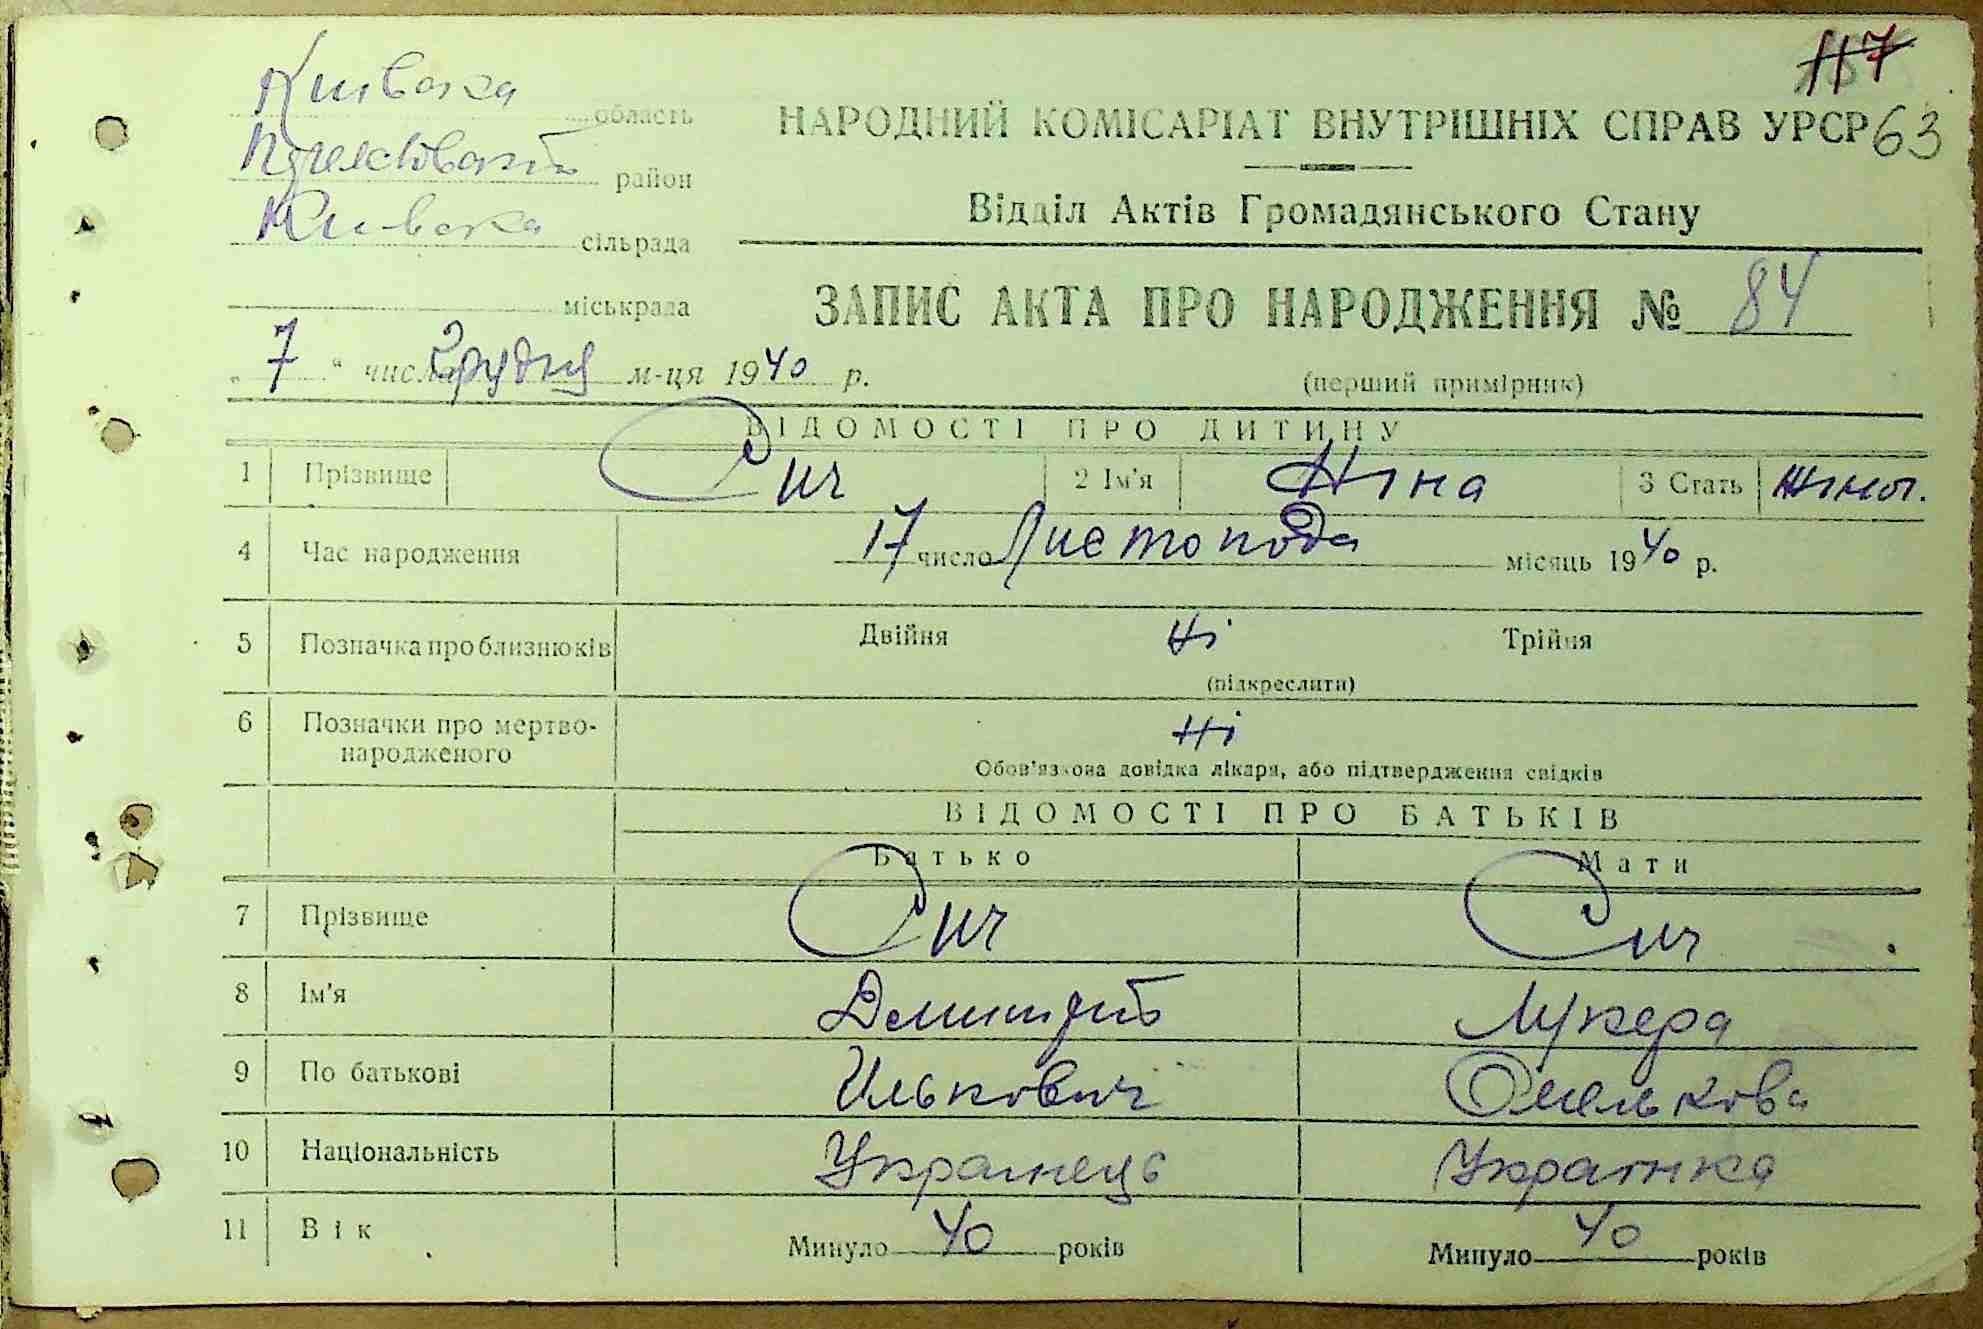 117
Київська область
район
Київська сільрада
міськрада
НАРОДНИЙ КОМІСАРІАТ ВНУТРІШНІХ СПРАВ УРСР 63
Відділ Актів Громадянського Стану
ЗАПИС АКТА ПРО НАРОДЖЕННЯ № 84
„7“ числа Грудня м-ця 1940 р.
(перший примірник)
ВІДОМОСТІ ПРО ДИТИНУ
1 Прізвище Сич 2 Ім'я Ніна 3 Стать Жіноч.
4 Час народження 17 число Листопода місяць 1940 р.
5 Позначка про близнюків Двійня Ні Трійня
(підкреслити)
6 Позначки про мертво-
народженого Ні
Обов'язкова довідка лікаря, або підтвердження свідків
ВІДОМОСТІ ПРО БАТЬКІВ
Батько Мати
7 Прізвище Сич Сич
8 Ім'я Демитрій Лукера
9 По батькові Илькович Омелькова
10 Національність Українець Українка
11 Вік Минуло 40 років Минуло 40 років